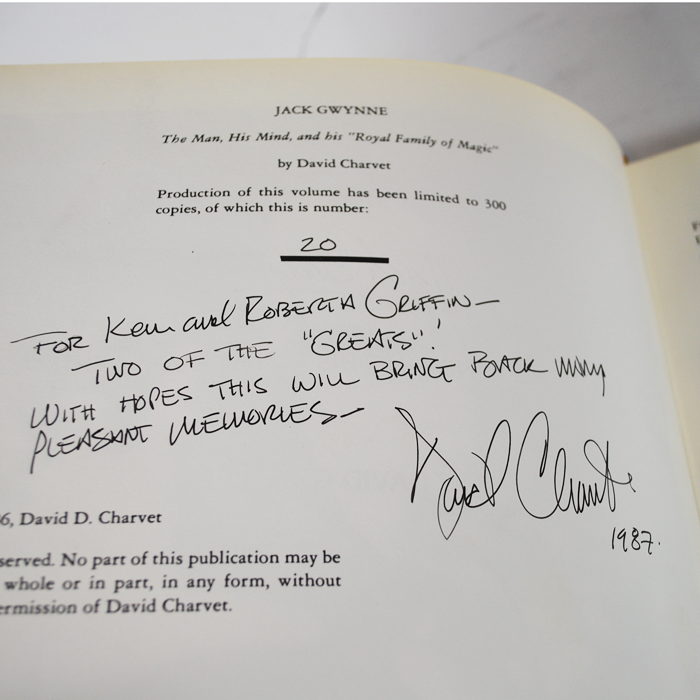 JACK GWYNNE
The Man, His Mind, and his "Royal Family of Magic"
by David Charvet
Production of this volume has been limited to 300
copies, of which this is number:
20
FOR Ken and ROBERTA GRIFFIN—
TWO OF THE "GREATS"!
WITH HOPES THIS WILL BRING BACK MANY
PLEASANT MEMORIES—
David Charvet
1987.
6, David D. Charvet
served. No part of this publication may be
whole or in part, in any form, without
ermission of David Charvet.